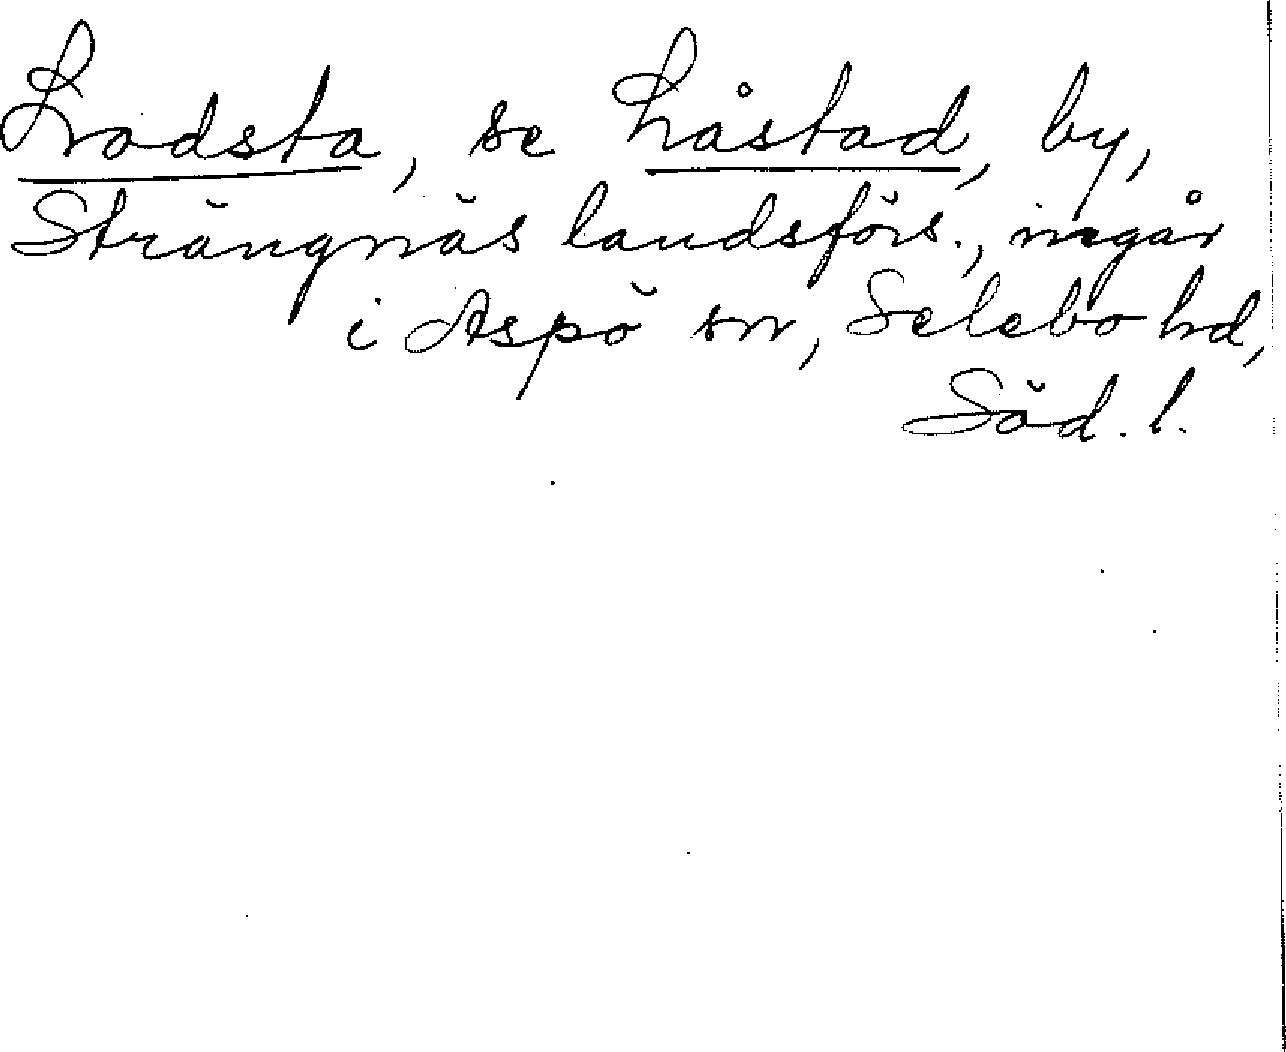 Lodsta, se Låstad, by,
Strängnäs landsförs., ingår
i Aspö sn, Selebo hd,
Söd. l.